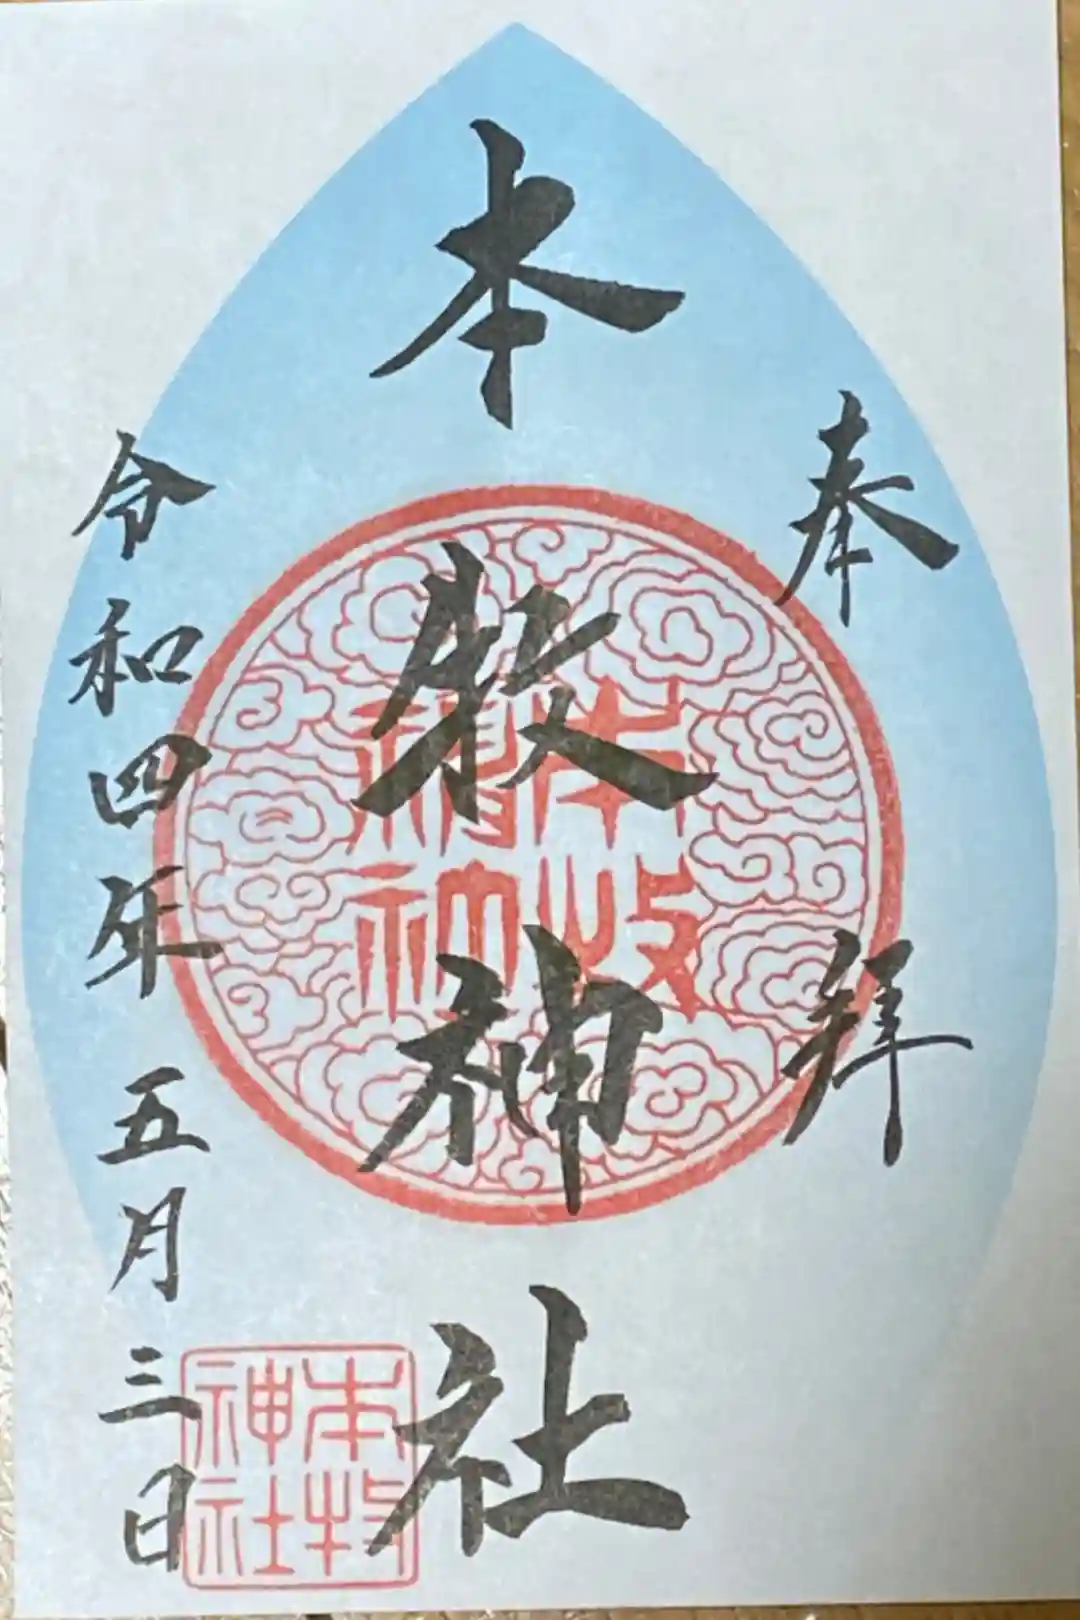 奉拝
本牧神社
令和四年五月三日
本牧
神社